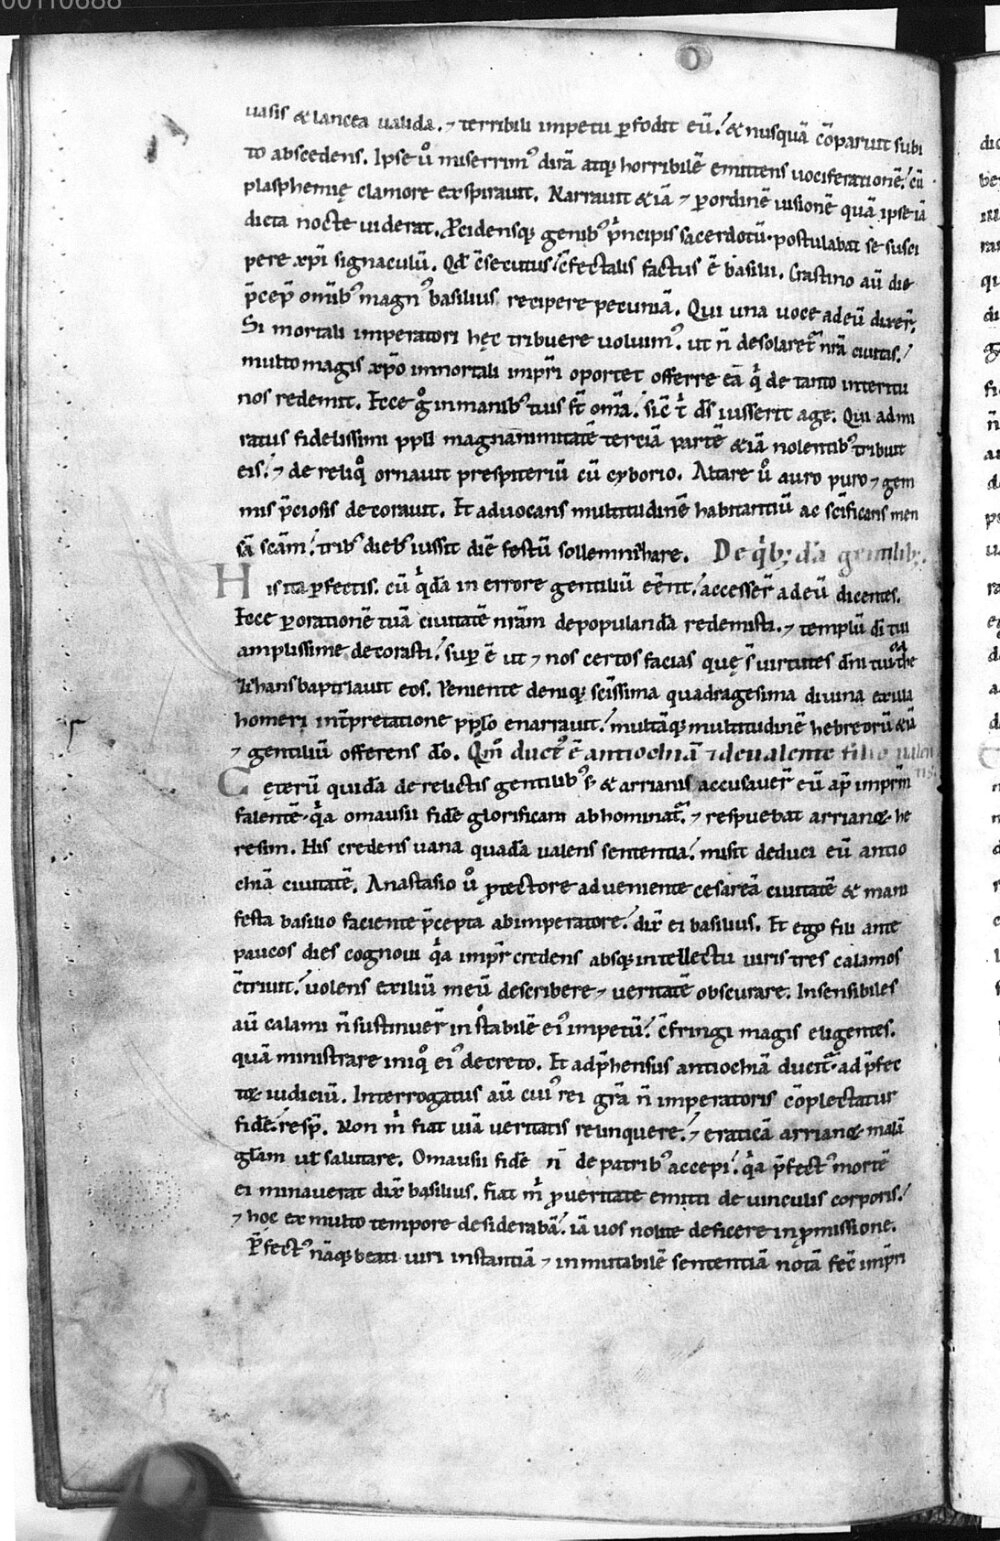 00110688
uasis & lancea ualida. ⁊ terribili impetu ꝑfodit eū. & nusquā cōparuit subi
to abscedens. Ipse uͦ miserrimꝰ dirā atqꝫ horribilē emittens uociferationē. cū
plasphemię clamore exspirauit. Narrauit & iā ⁊ ꝑ ordinē uisionē quā ipse iā
dicta nocte uiderat. ꝓcidensqꝫ genibꝰ pͥncipis sacerdotū. postulabat se susci
pere xp̄i signaculū. Qd̄ c̄secutus. c̄fectalis factus ē basilii. Crastino aū die
p̄cep̄ omībꝰ magnꝰ basilius recipere pecuniā. Qui una uoce ad eū dixer̄.
Si mortali imperatori hęc tribuere uoluimꝰ. ut n̄ desolaret᷑ nr̄a ciuitas.
multo magis xp̄o immortali imp̄ri oportet offerre eā qͥ de tanto interitu
nos redemit. Ecce gͦ in manibꝰ tuis st̄ om̄a. sic̄ t̄ ds̄ iusserit age. Qui admi
ratus fidelissimi pp̄li magnanimitatē terciā partē & iā nolentibꝰ tribuit
eis. ⁊ de reliqͦ ornauit prespiteriū cū cyborio. Altare uͦ auro puro ⁊ gem
mis p̄ciosis decorauit. Et aduocans multitudinē habitantiū ac sc̄ificans men
sā sc̄am. tribꝰ diebꝰ iussit diē festū sollemnizare. De qͥbꝫ dā gentilibꝫ.
His ita ꝑfectis. cū qͥdā in errore gentiliū eēnt. accesser̄ ad eū dicentes.
Ecce ꝑ orationē tuā ciuitatē nr̄am depopulandā redemisti. ⁊ templū dī tui
amplissime decorasti. suꝑ ē ut ⁊ nos certos facias que s̄ uirtutes dn̄i tui
baptizauit eos. Veniente deniqꝫ sc̄issima quadragesima diuina ex illa
homeri int̄pretatione pp̄lo enarrauit. multāqꝫ multitudinē hebreorū
⁊ gentiliū offerens dō. Qm̄ duct᷑ ē antiochiā ⁊ de ualente filio ualen
tis.
Cęterū quidā de relictis gentilibꝰ & arrianis accusauer̄ eū ap̄ imprm̄
ualentē. qͥa omausii fidē glorificam abhominat᷑. ⁊ respuebat arrianę he
resim. His credens uana quadā ualens sententia. misit deduci eū antio
chiā ciuitatē. Anastasio uͦ ꝓtectore adueniente cesareā ciuitatē & mani
festa basilio faciente p̄cepta ab imperatore. dix̄ ei basilius. Et ego fili ante
paucos dies cognoui qͥa imp̄r credens absqꝫ intellectu uiris tres calamos
c̄triuit. uolens exiliū meū describere ⁊ ueritatē obscurare. Insensibiles
aū calami n̄ sustinuer̄ instabilē eiꝰ impetū. c̄fringi magis eligentes.
quā ministrare iniqͦ eiꝰ decreto. Et adp̄hensus antiochiā ducit᷑. ad p̄fec
tę iudiciū. Interrogatus aū cuiꝰ rei grā n̄ imperatoris cōplectatur
fidē. resp̄. Non m̄ fiat uiā ueritatis relinquere. ⁊ eraticā arrianę
salutare. Omausii fidē n̄ de patribꝰ accepi. qͥa p̄fectꝰ mortē
ei minauerat dix̄ basilius. fiat m̄ ꝓ ueritate emitti de uinculis corporis.
⁊ hoc ex multo tempore desiderabā. iā uos nolite deficere in ꝓmissione.
P̄fectꝰ nāqꝫ beati uiri instantiā ⁊ inmutabilē sententiā notā fec̄ imp̄ri